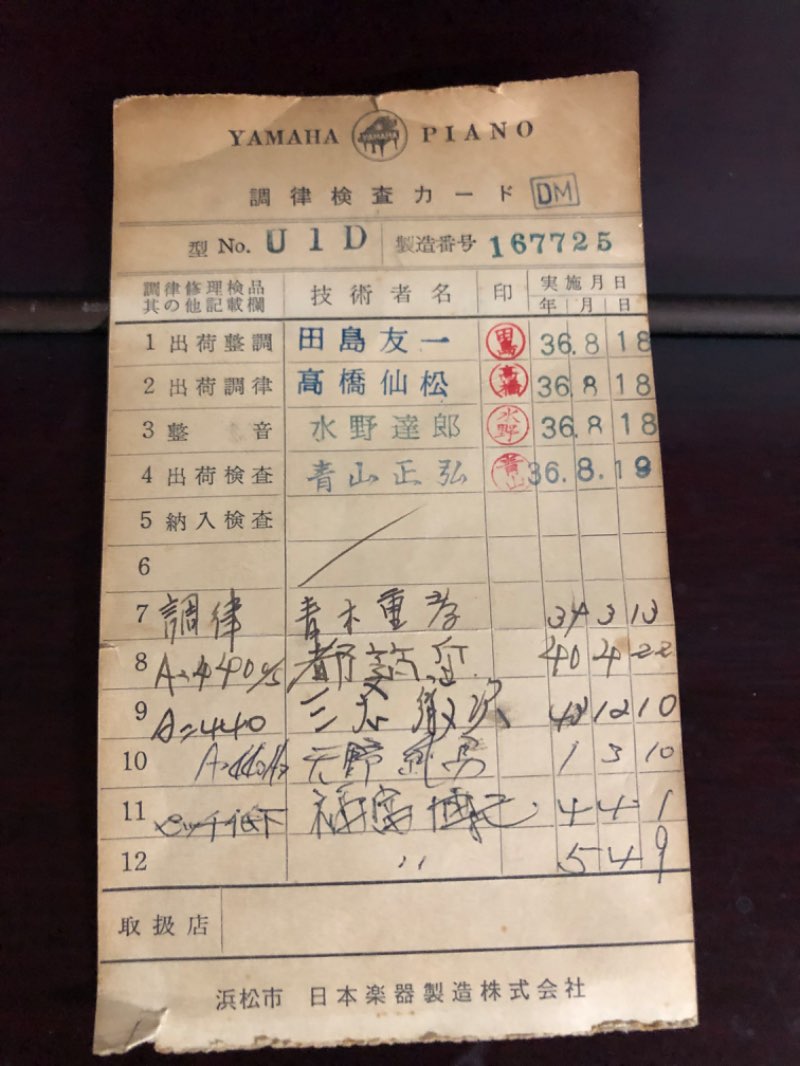 YAMAHA YAMAHA PIANO
調律検査カード DM
型 No. U1D 製造番号 167725
調律修理検品其の他記載欄 技術者名 印 実施月日 年 月 日
1 出荷整調 田島友一 田島 36.8 18
2 出荷調律 高橋仙松 高橋 36.8 18
3 整音 水野達郎 水野 36.8 18
4 出荷検査 青山正弘 青山 36.8.19
5 納入検査
6
7 調律 青木重 3 13
8 A=440 都 40 4 22
9 A=440 三 12 10
10 A=440Hz 天野 男 1 3 10
11 ピッチ低下 福富博 4 4 1
12 〃 5 4 9
取扱店
浜松市 日本楽器製造株式会社